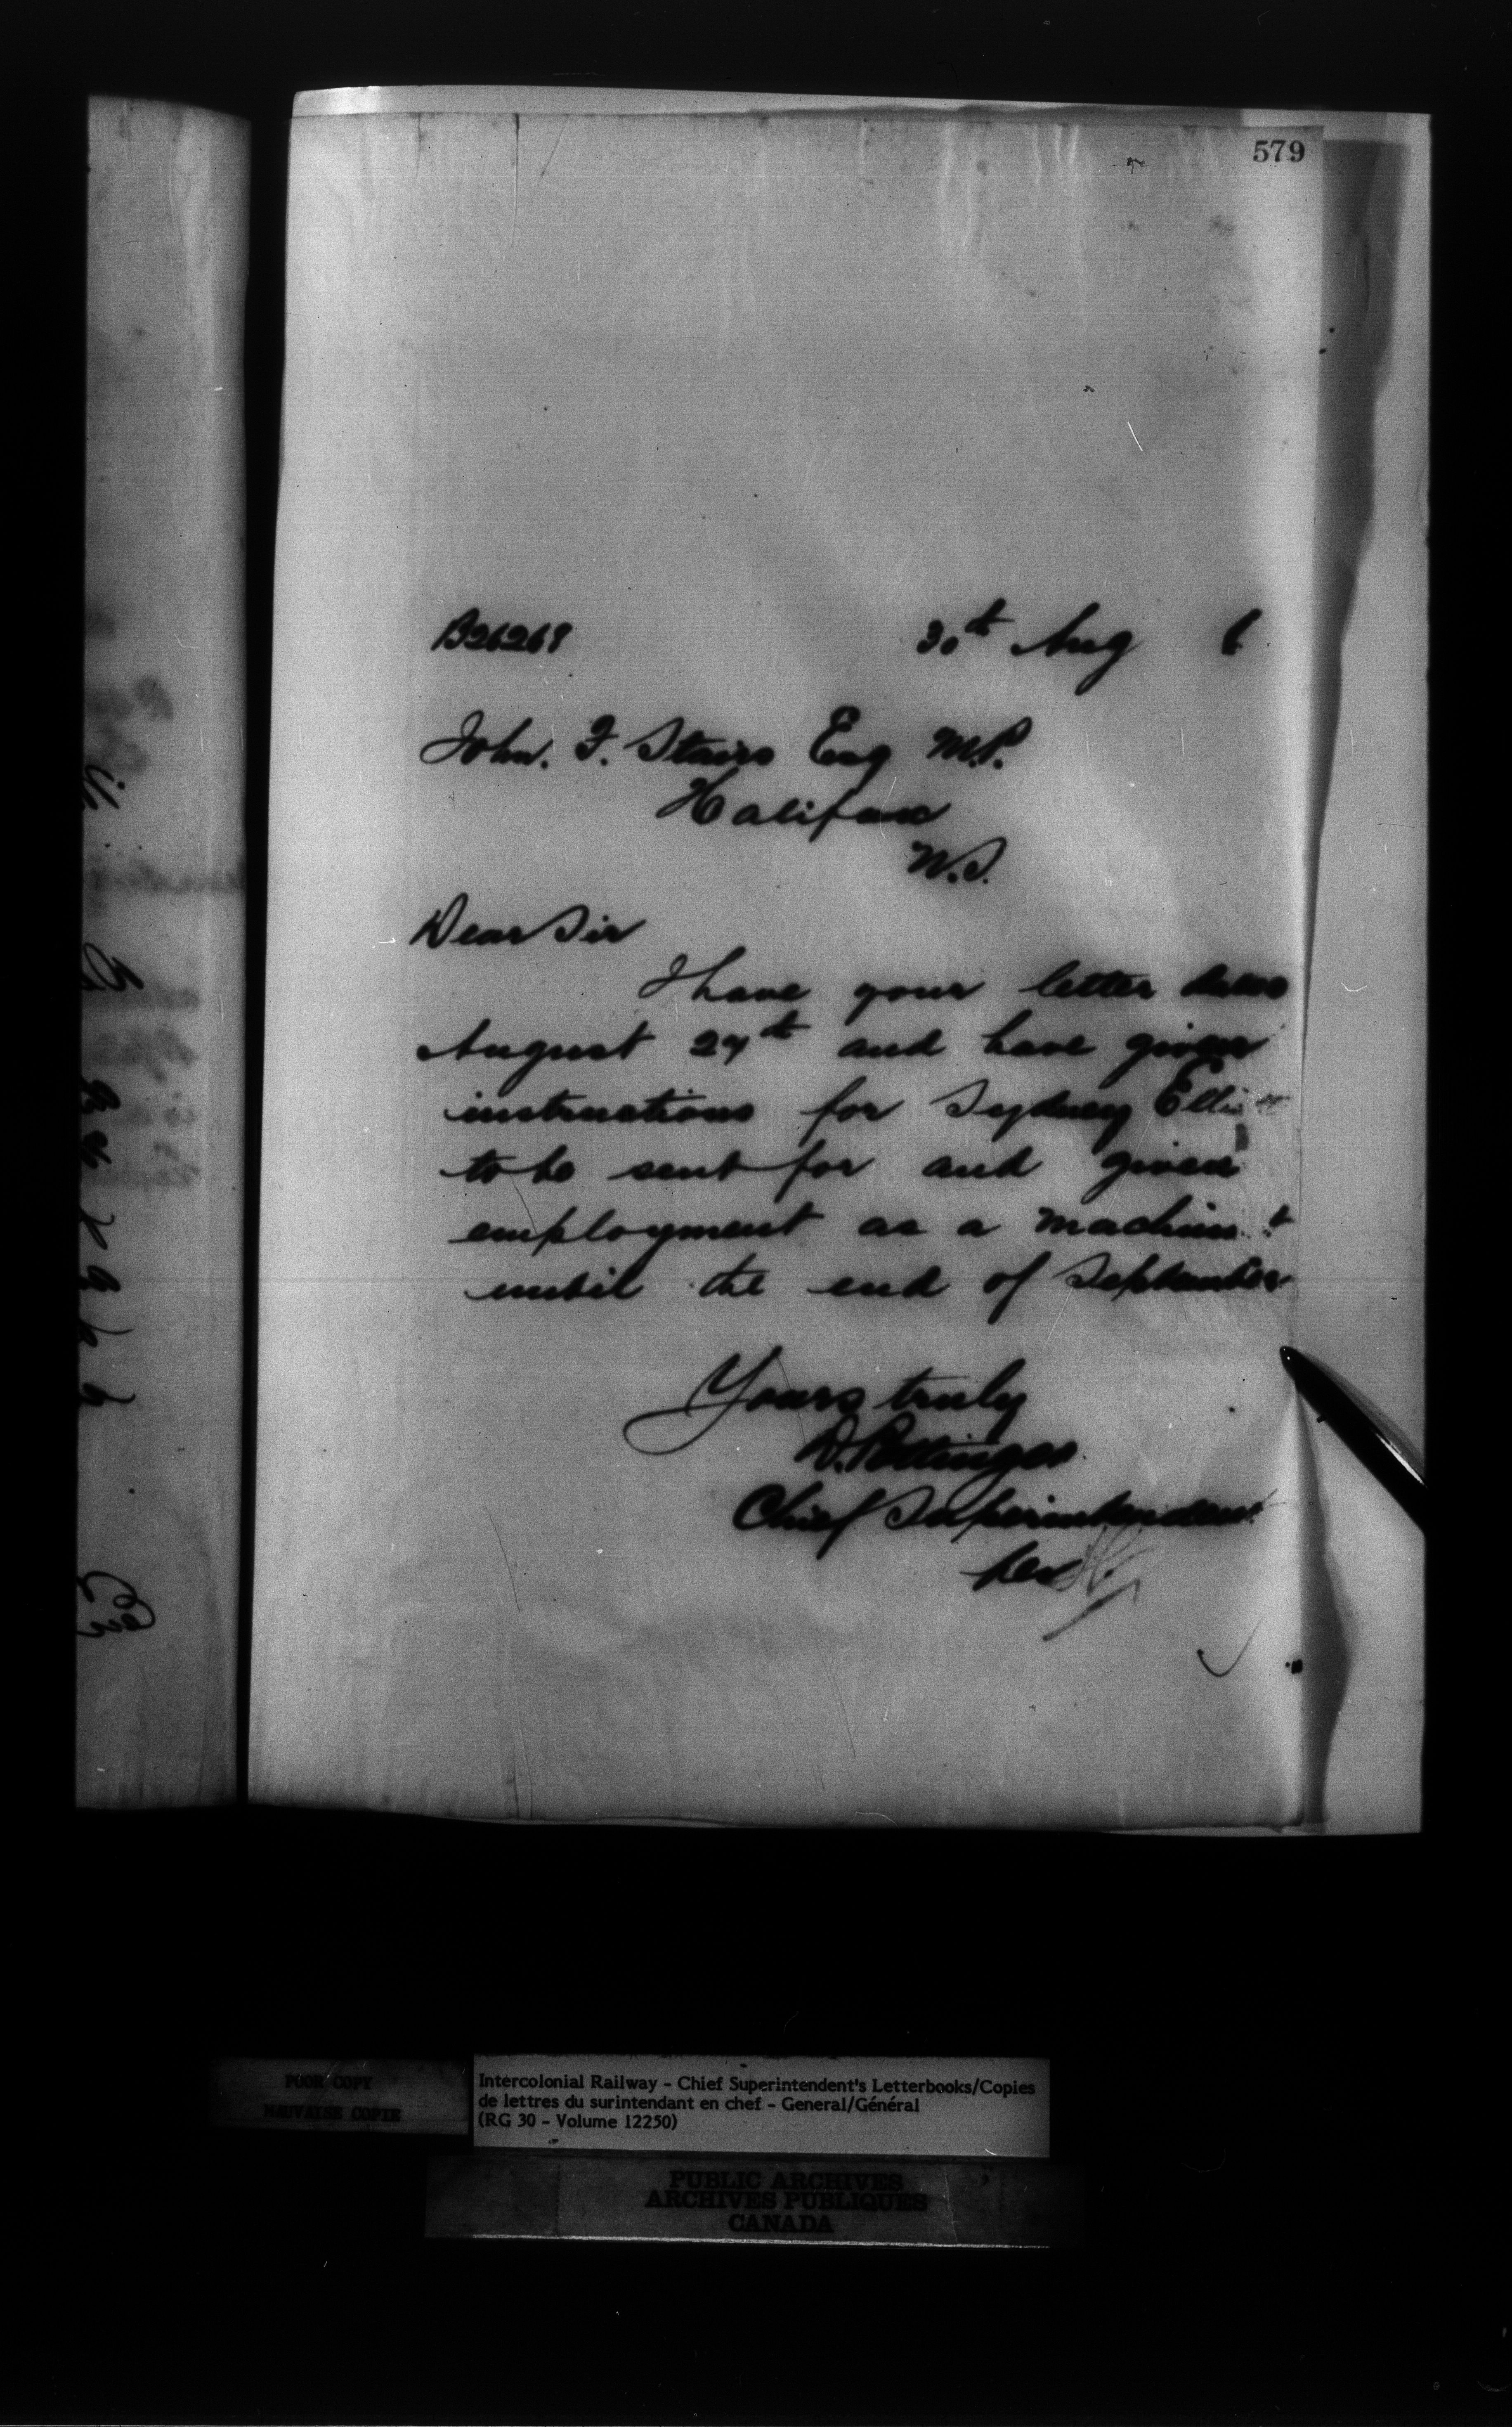 579
B26269
30th Aug 6
John. F. Stairs Esq M.P.
Halifax
N.S.
Dear Sir
I have your letter dated
August 27th and have given
instructions for Sydney
to be sent for and given
employment as a machinist
until the end of September
Yours truly
D. Pottinger
Chief Superintendent
per
POOR COPY
MAUVAISE COPIE
Intercolonial Railway - Chief Superintendent's Letterbooks/Copies
de lettres du surintendant en chef - General/Général
(RG 30 - Volume 12250)
PUBLIC ARCHIVES
ARCHIVES PUBLIQUES
CANADA